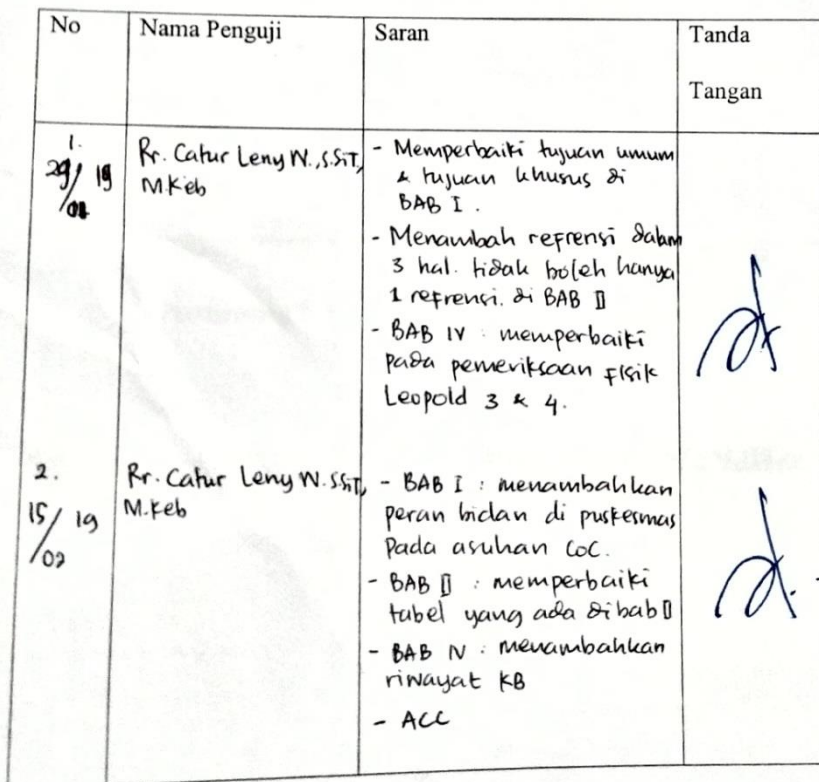 No
Nama Penguji
Saran
Tanda
Tangan
1.
29/ 19
/01
Rr. Catur Leny W., S.SiT,
M.Keb
- Memperbaiki tujuan umum
& tujuan khusus di
BAB I.
- Menambah refrensi dalam
3 hal. tidak boleh hanya
1 refrensi. di BAB II
- BAB IV : memperbaiki
pada pemeriksaan fisik
Leopold 3 & 4.
2.
15/ 19
/02
Rr. Catur Leny W. S.SiT,
M.Keb
- BAB I : menambahkan
peran bidan di puskesmas
pada asuhan CoC.
- BAB II : memperbaiki
tabel yang ada di bab II
- BAB IV : menambahkan
riwayat KB
- ACC